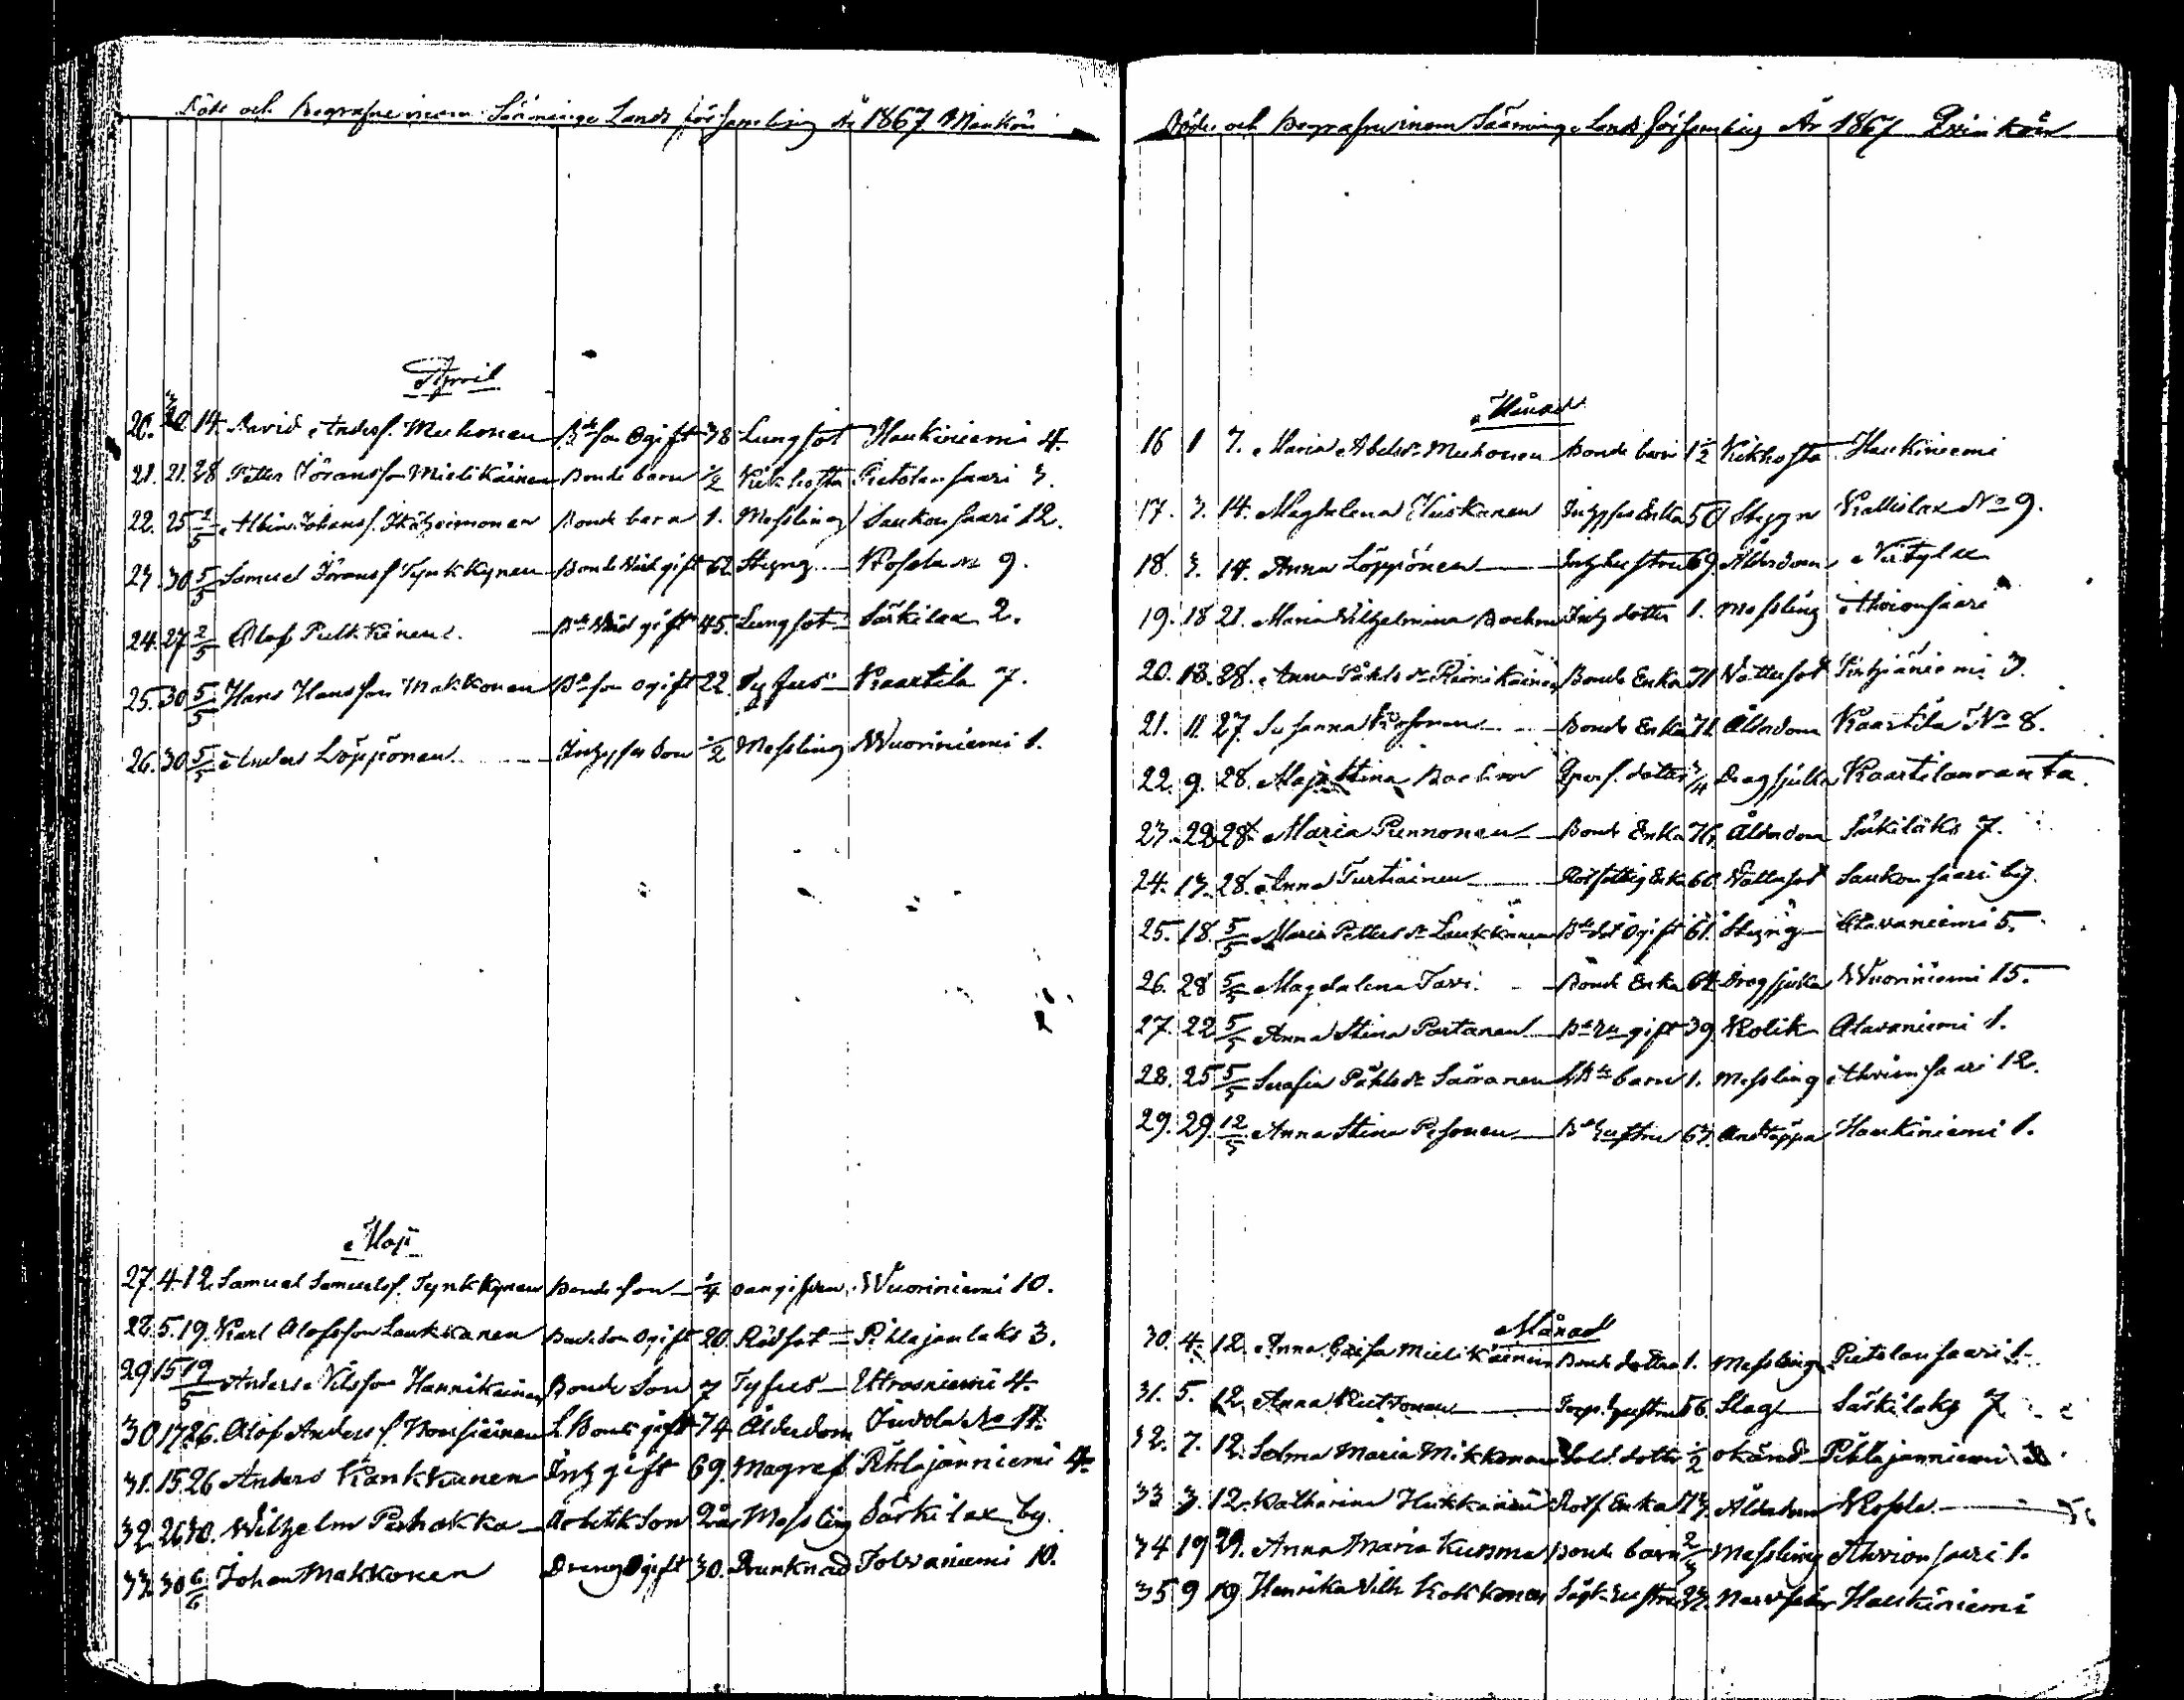 Döde och Begrafne inom Sääminge Lands församling År 1867 Mankön
April
20. 30/3 14. David Andersf. Muhonen Bde son Ogift 38 Lungsot Haukiniemi 4.
21. 21. 28 Petter Jöransson Mielikäinen Bonde barn 1/2 Kikhosta Pietolansaari 3.
22. 25 1/5 Albin Johansf. Bonde barn 1. Messling Saukonsaari 12.
23. 30 5/5 Samuel Jöransf Tynkkynen Bonde Värd gift 62 Styng Kosola 9.
24. 27 2/5 Olof Pulkkinen Bde Värd gift 45. Lungsot Särkilax 2.
25. 30 5/5 Hans Hansson Makkonen Bde son ogift 22. Tyfus Kaartila 7.
26. 30 5/5 Anders Löppönen Inhyses Son 1/2 Messling Wuoriniemi 1.
Maji
27. 4. 12. Samuel Samuelsf. Tynkkynen Bonde son 1/4 oangifven Wuoriniemi 10.
28. 5. 19. Karl Olofsson Laukkanen Bonde son Ogift 20. Rödsot Pihlajanlaks 3.
29 15 19/5 Anders Nilsson Hannikainen Bonde Son 7 Tyfus Utrasniemi 4.
30 17 26. Olof Andersf. L. Bonde gift 74 Ålderdom Juvola No 14.
31. 15. 26 Anders Kankkunen Inh gift 69. Magref Pihlajanniemi 4
32. 26 30. Wilhelm Parhokka Arbetsk Son 2 år Messling Särkilax by.
33. 30 6/6 Johan Makkonen Dreng Ogift 30. Drunknad Tolvaniemi 10.
Döde och Begrafne inom Sääminge Lands församling År 1867 Qvinkön
Månad
16 1 7. Maria Abelsdr Muhonen Bonde barn 1 1/2 Kikhosta Haukiniemi
17. 3. 14. Magdalena Kiiskanen Inhyses Enka 50 Styng Kallislax No 9.
18. 3. 14. Anna Löppönen Inh hustru 69. Ålderdom
19. 18 21. Maria Wilhelmina Inh dotter 1. Messling Ahvionsaari
20. 13. 28. Anna Påhlsdr Bonde Enka 71 Vattusot 3.
21. 11. 27. Susanna Kosonen Bonde Enka 71. Ålderdom Kaartila No 8.
22. 9. 28. Maja Stina dotter 3/4 Dragsjuka Kaartilanranta.
23. 22 28. Maria Punnonen Bonde Enka 76. Ålderdom 7.
24. 13. 28. Anna Turtiainen Rotfattig Enka 60. Vattusot Saukonsaari by.
25. 18. 5/5 Maria Pettersdr Laukkanen Bde dot Ogift 61. Styng Otavaniemi 5.
26. 28 5/5 Magdalena Tarvi Bonde Enka 64 Dragsjuka Wuoriniemi 15.
27. 22 5/5 Anna Stina Partanen Bde Hu gift 39. Kolik Otavaniemi 1.
28. 25 5/5 Serafia Påhlsdr barn 1. Messling Ahvionsaari 12.
29. 29. 12/5 Anna Stina Pesonen Bde Hustru 63. Andtäppa Haukiniemi 1.
Månad
30. 4. 12. Anna Kaisa Mielikäinen Bonde dotter 1. Messling Pietolansaari 1.
31. 5. 12. Anna Torp. hustru 56. Slag Särkilaks 7
32. 7. 12. Selma Maria Mikkonen Sold. dotter 1/2 okänd Pihlajanniemi
33 3. 12. Katharina Hukkainen Rotf Enka 73. Ålderdom Kosola
34 19 29. Anna Maria Kuosma Bonde barn 2/3 Messling Ahvionsaari 1.
35 9 19 Henrika Vilh Kokkonen hustru 23. Nervfeber Haukiniemi